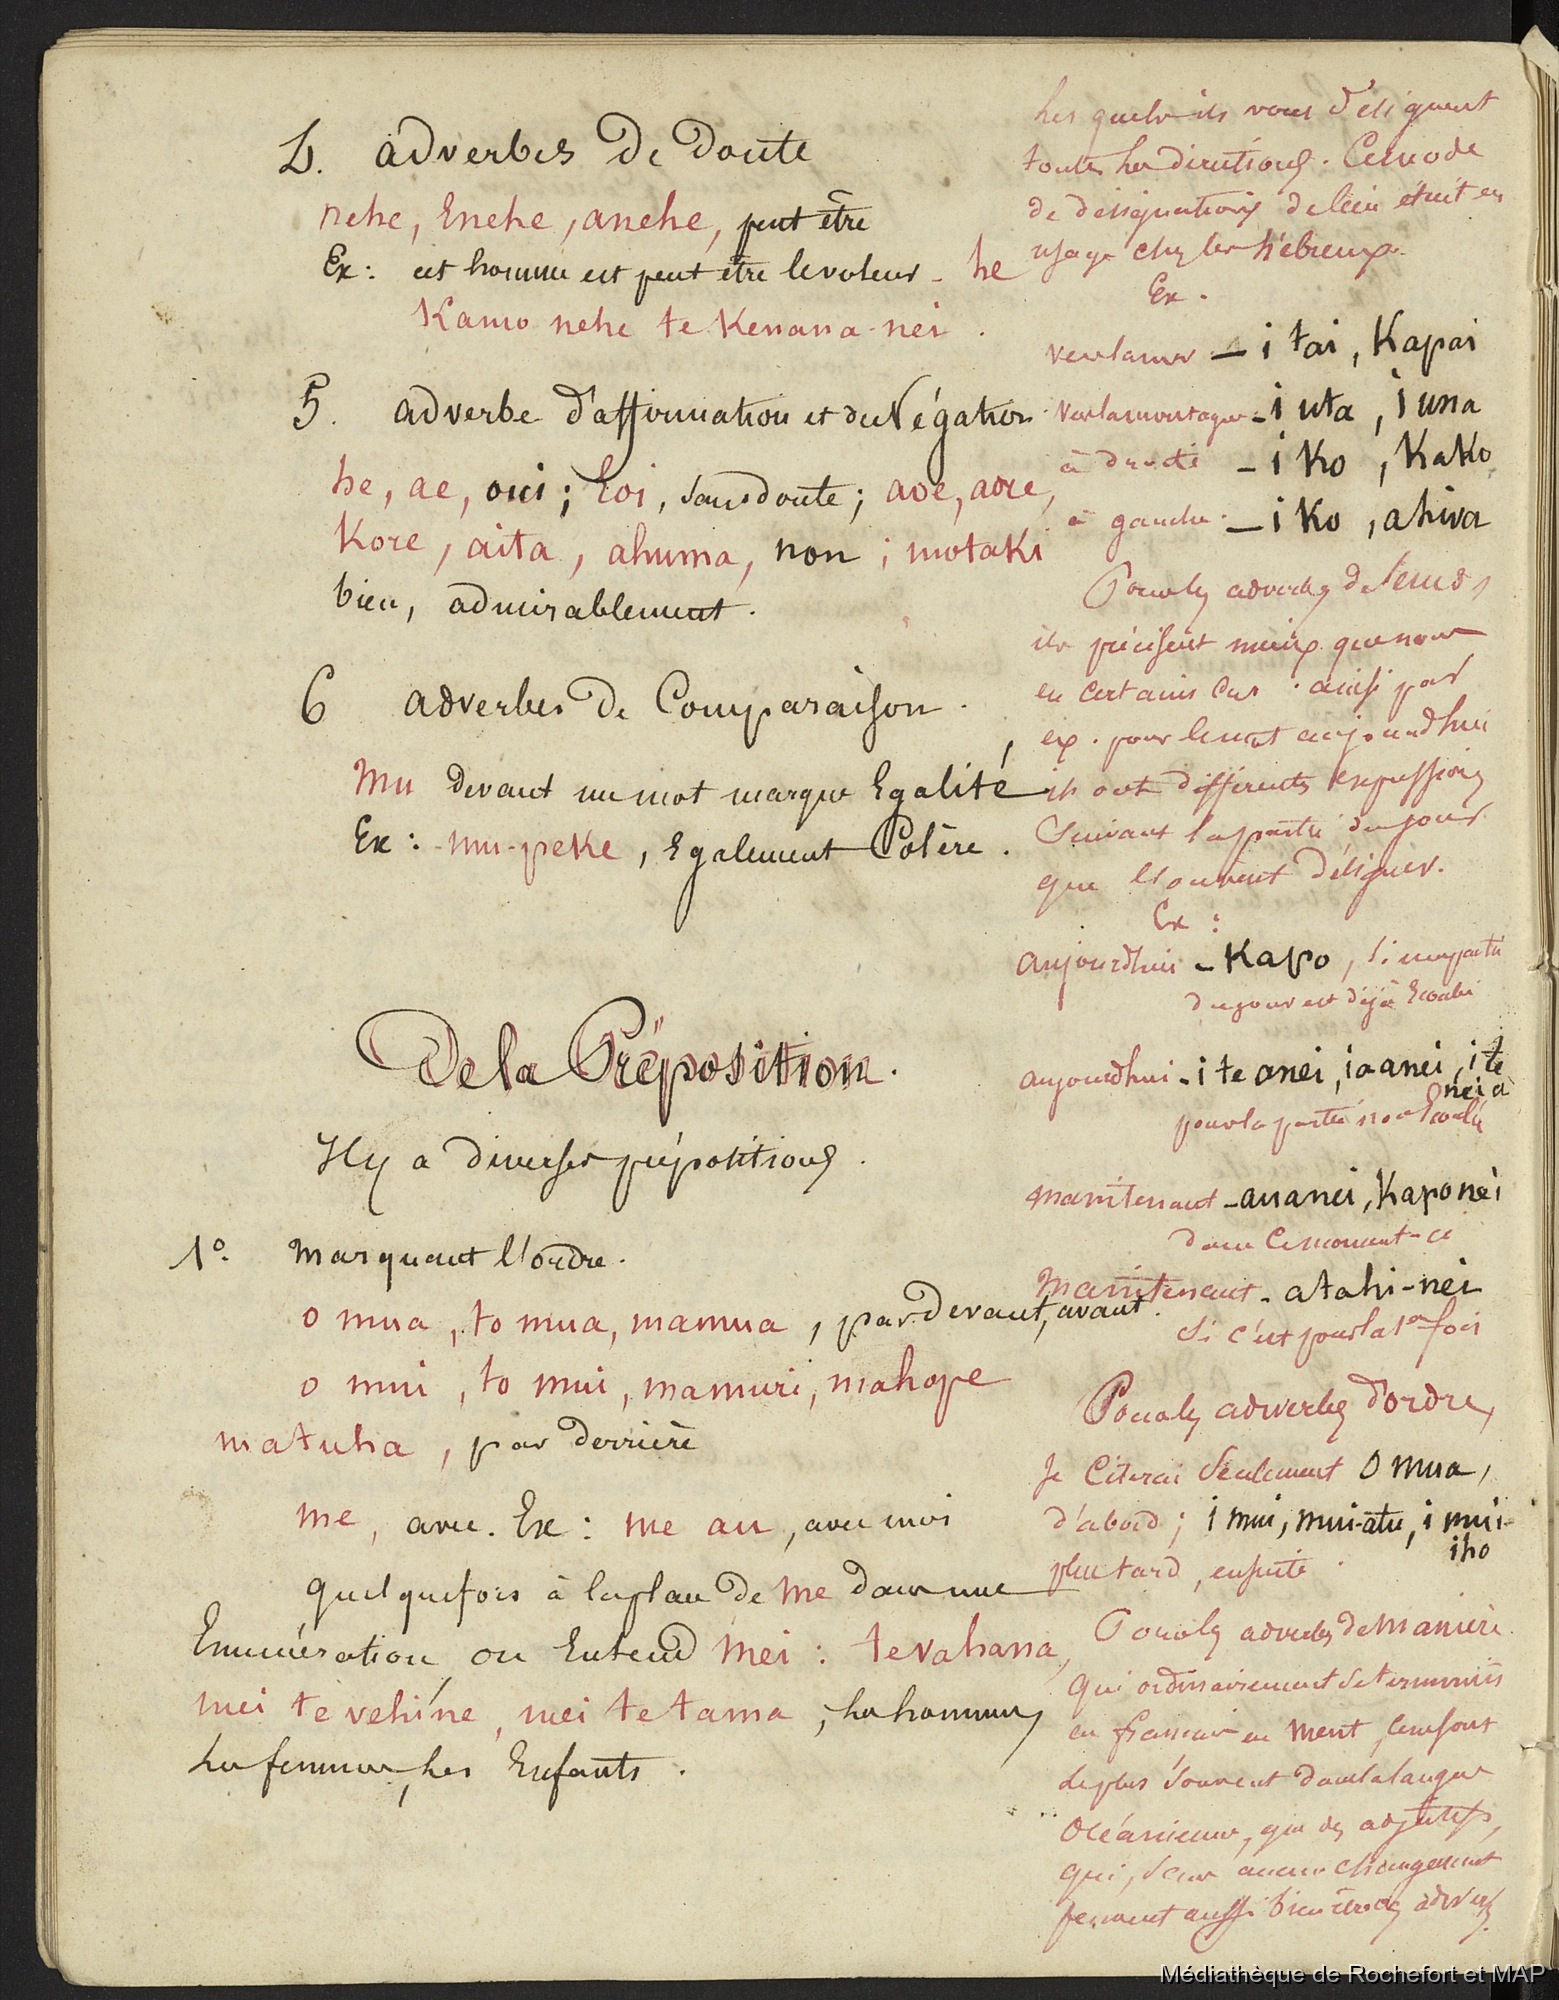 4. adverbes De Doute
nehe, Enehe, anehe, peut être
Ex: cet homme est peut être le voleur - he
Kamo nehe te Kenana-nei.
5. adverbe d'affirmation et de Négation.
he, ae, oui; hoi, sans doute; aoe, aore,
Kore, aita, ahuma, non; motaki
bien, admirablement.
6 adverbes De Comparaison.
Mu Devant un mot marque Egalité
Ex: mu-peke, Egalement Colère.
De la Préposition.
Il y a Diverses prépositions.
1º. Marquant l'ordre.
o mua, to mua, mamua, par Devant, avant.
o mui, to mui, mamuri, mahope
matuha, par Derrière
me, avec. Ex: me au, avec moi
Quelquefois à la place De me dans une
Enumération, on Entend mei: te vahana,
mei te vehine, mei te tama, les hommes,
les femmes, les Enfants.
les quels ils vous Désignent
toutes les directions. Ce mode
de désignations de lieu était en
usage chez les hébreux.
Ex.
vers la mer - i tai, Kapai
vers la montagne - i uta, i una
à droite - i Ko, Kako
à gauche - i Ko, ahiva
Pour les adverbes de tems,
ils précisent mieux que nous
en certains cas. ainsi par
ex. pour le mot aujourdhui
ils ont différentes expressions
suivant la partie du jour
que l'on veut Désigner.
Ex:
aujourdhui - Kapo, si une partie
du jour est déjà Ecoulée
aujourdhui - i te anei, ia anei, i te
nei a
pour la partie non Ecoulée
maintenant - auanei, Kapo nei
dans ce moment-ci
Maintenant - atahi-nei
si c'est pour la 1re fois
Pour les adverbes d'ordre,
Je Citerai seulement o mua,
d'abord; i mui, mui-atu, i mui-
iho
plus tard, ensuite.
Pour les adverbes de Manière
qui ordinairement se terminent
en français en ment, ce ne sont
le plus souvent dans la langue
Océanienne, que des adjectifs,
qui, sans aucun changement
peuvent aussi bien être des adverbes.
Médiathèque de Rochefort et MAP